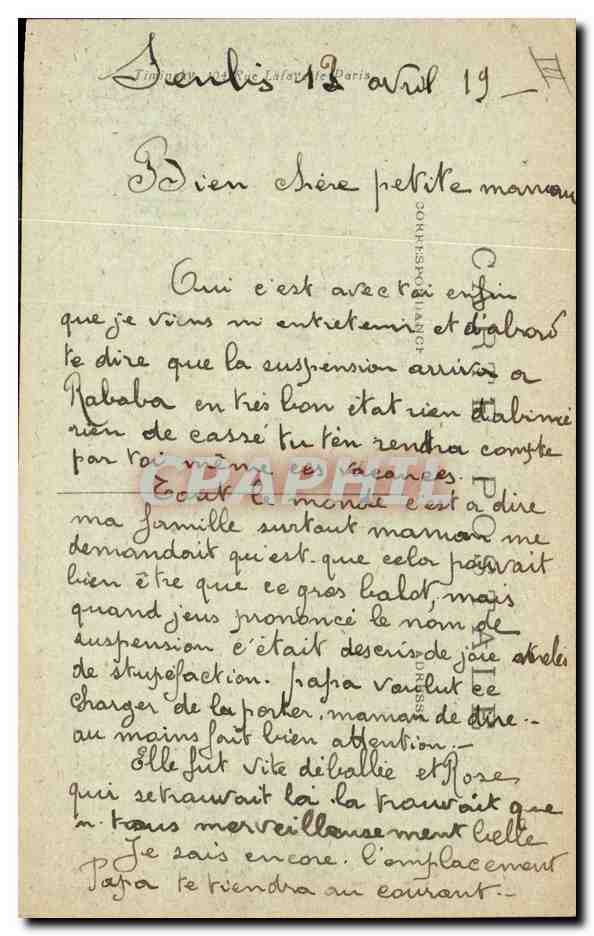 Senlis 12 avril 19_
Timingky 104 Rue Lafayette Paris
III
Bien chère petite maman
Oui c'est avec toi enfin
que je viens m'entretenir et d'abord
te dire que la suspension arriva a
Rababa en très bon état rien d'abimé
rien de cassé tu t'en rendra compte
par toi même ces vacances.
Tout le monde c'est a dire
ma famille surtout maman me
demandait qu'est-que cela pouvait
bien être que ce gros balot, mais
quand j'eus prononcé le nom de
suspension c'était des cris de joie et
de stupefaction. papa voulut ce
charger de la porter, maman de dire.-
au moins fait bien attention.-
Elle fut vite déballée et Rose
qui se trouvait là la trouvait que
n. tous merveilleusement belle
Je sais encore l'emplacement
Papa te tiendra au courant.-
CARTE POSTALE
CORRESPONDANCE
ADRESSE
CPAPHIL